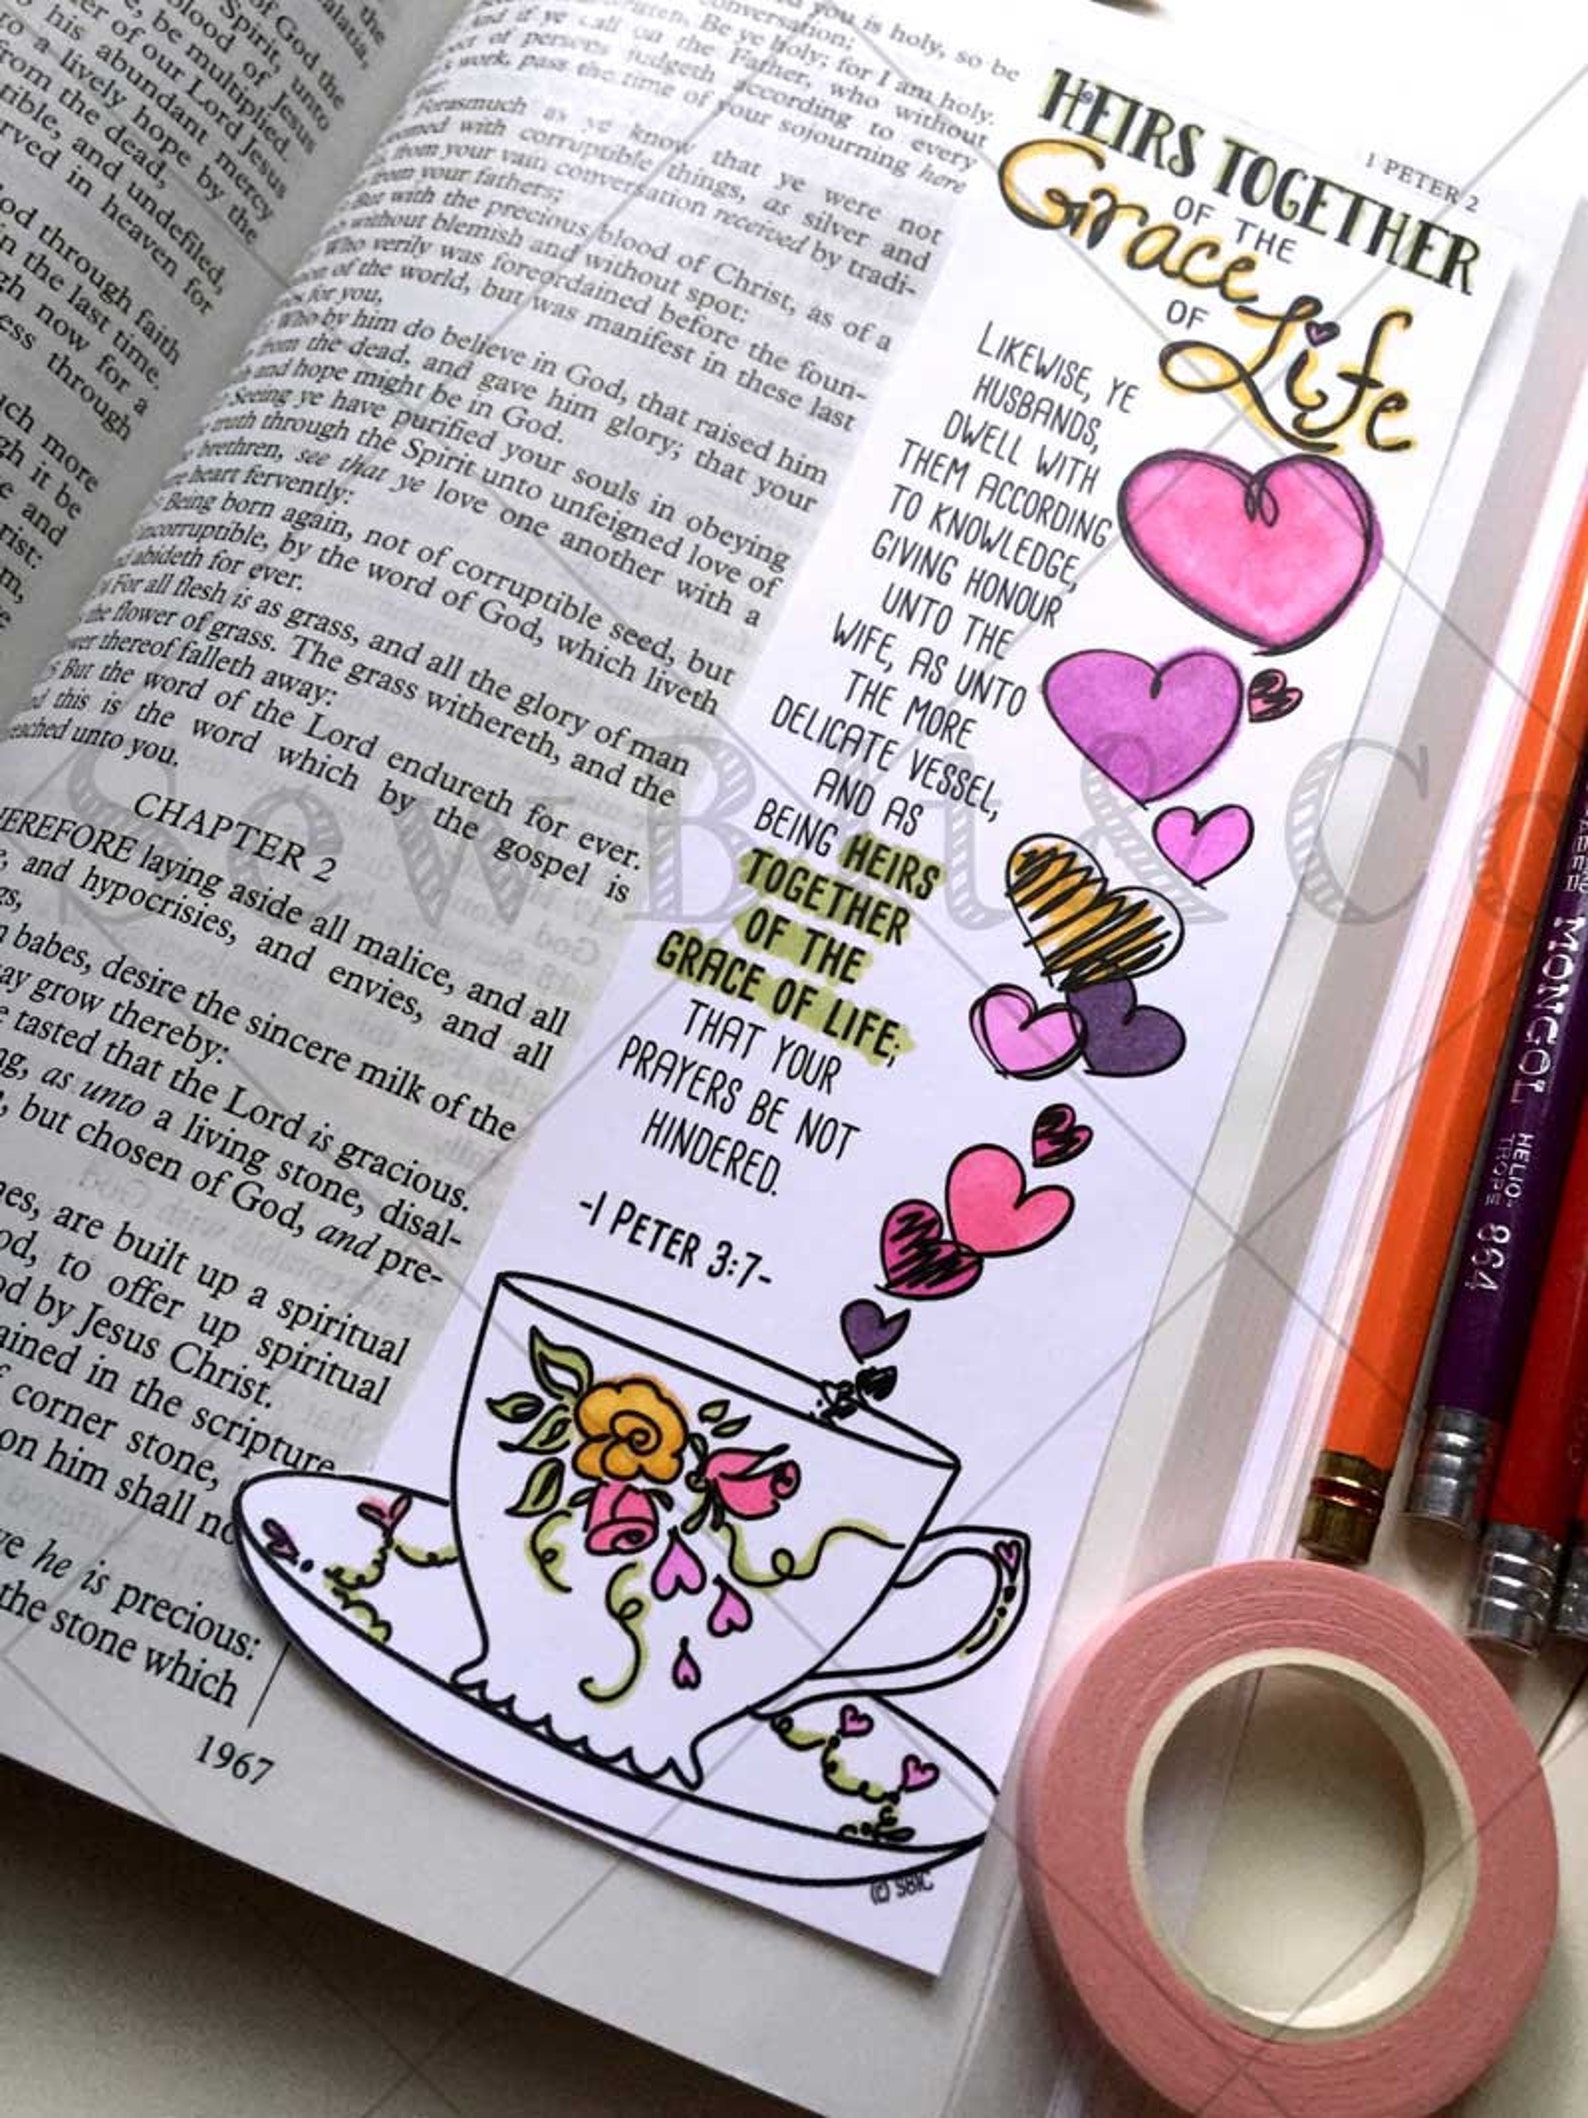 of God the
Spirit, unto
blood of Jesus
be multiplied.
of our Lord Jesus
his abundant mercy
to a lively hope by the
from the dead,
and undefiled,
in heaven for
God through faith
in the last time.
now for a
through
much more
it be
and
you is holy, so be
conversation;
Be ye holy; for I am holy.
And if ye call on the Father, who without
of persons judgeth according to every
work, pass the time of your sojourning here
Forasmuch as ye know that ye were not
with corruptible things, as silver and
from your vain conversation received by tradi-
from your fathers;
But with the precious blood of Christ, as of a
without blemish and without spot:
Who verily was foreordained before the foun-
of the world, but was manifest in these last
for you,
Who by him do believe in God, that raised him
from the dead, and gave him glory; that your
and hope might be in God.
Seeing ye have purified your souls in obeying
truth through the Spirit unto unfeigned love of
brethren, see that ye love one another with a
heart fervently:
Being born again, not of corruptible seed, but
incorruptible, by the word of God, which liveth
abideth for ever.
For all flesh is as grass, and all the glory of man
the flower of grass. The grass withereth, and the
thereof falleth away:
But the word of the Lord endureth for ever.
this is the word which by the gospel is
unto you.
CHAPTER 2
laying aside all malice, and all
and hypocrisies, and envies, and all
babes, desire the sincere milk of the
may grow thereby:
tasted that the Lord is gracious.
as unto a living stone, disal-
but chosen of God, and pre-
are built up a spiritual
to offer up spiritual
by Jesus Christ.
in the scripture
corner stone,
on him shall
he is precious:
the stone which
1967
1 PETER 2
HEIRS TOGETHER
OF THE
Grace
OF
Life
LIKEWISE, YE
HUSBANDS,
DWELL WITH
THEM ACCORDING
TO KNOWLEDGE,
GIVING HONOUR
UNTO THE
WIFE, AS UNTO
THE MORE
DELICATE VESSEL,
AND AS
BEING HEIRS
TOGETHER
OF THE
GRACE OF LIFE;
THAT YOUR
PRAYERS BE NOT
HINDERED.
-1 PETER 3:7-
© SBIC
MONGOL
HELIO-
TROPE
864